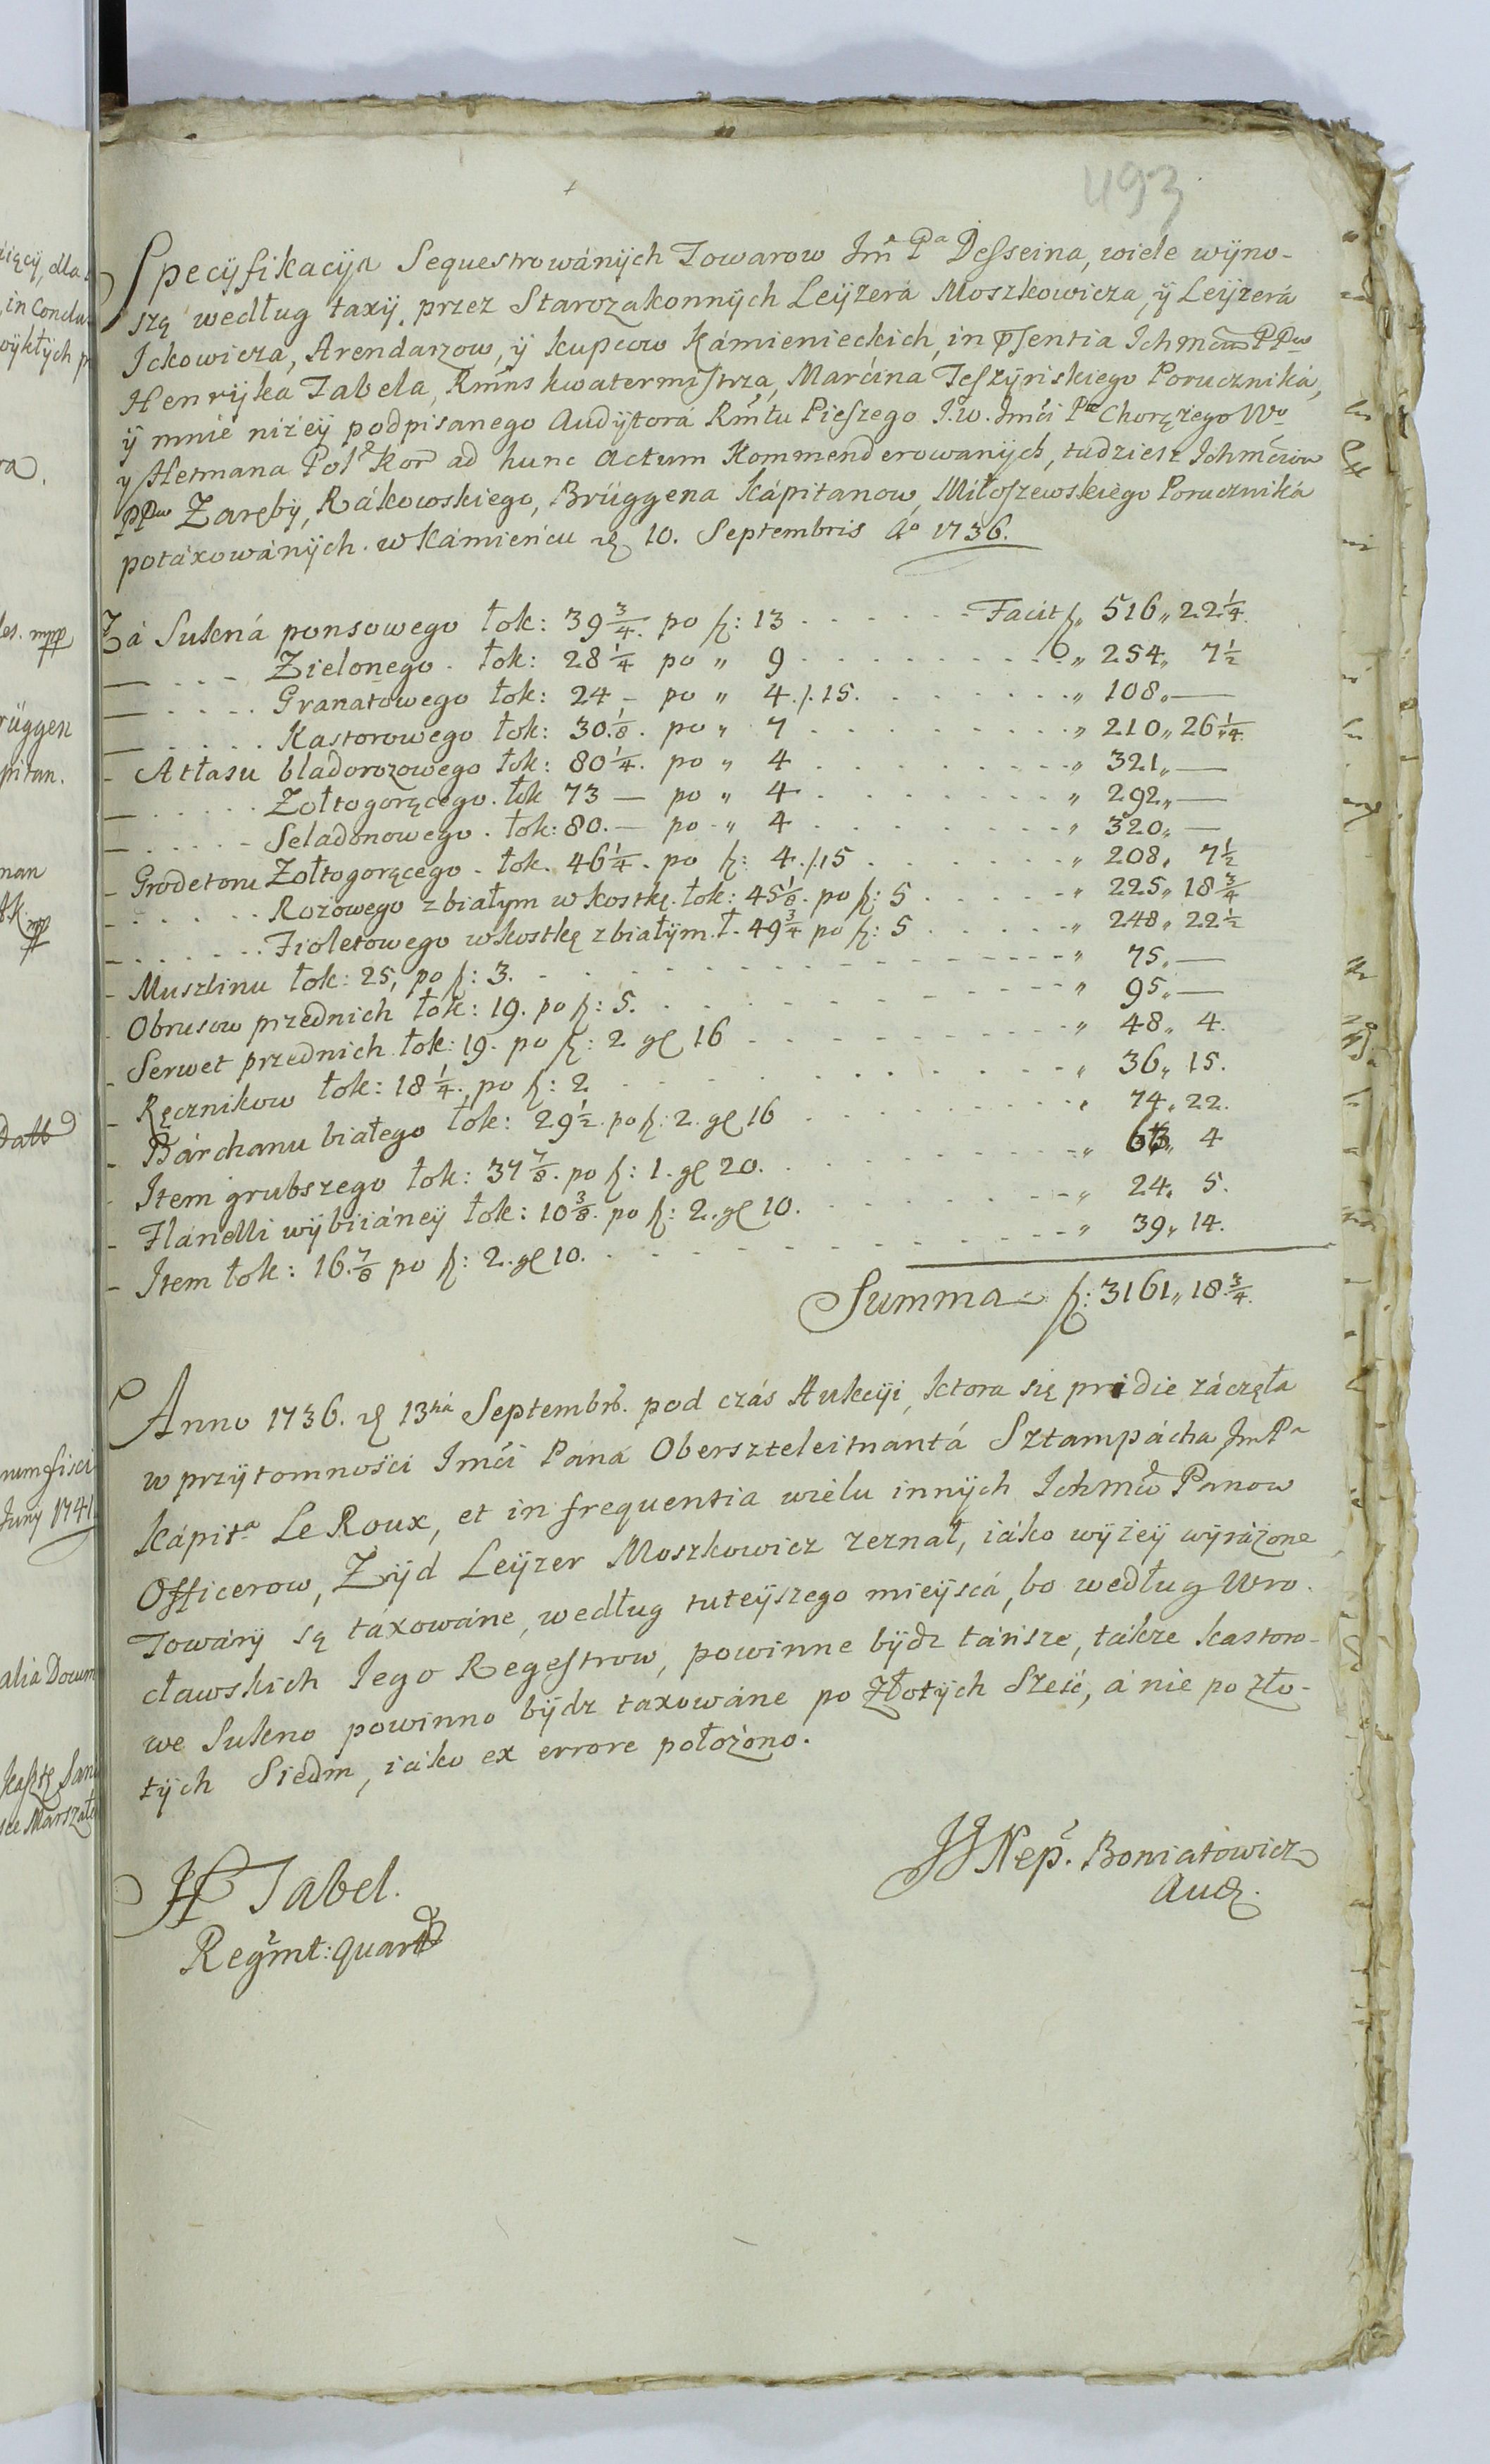 493
Specyfikacyja Sequestrowánych Towarow Jmć Pa Desseina, wiele wyno-
szą według taxy, przez Starozakonnych Leyzerá Moszkowicza, y Leyzerá
Ickowicza, Arendarzow, y kupcow Kámienieckich, in psentia Ichmćiow PPow
Henryka Tabela, Rmns kwatermistrza, Marćina Teszyńskiego Poruczniká,
y mnie niżey podpisanego Audytorá Rmtu Pieszego J.W. Jmći Pa Chorążego Wo
y Hetmana Pol Kor ad hunc Actum Kommenderowanych, tudziesz Ichmćiow
PPow Zaręby, Rákowskiego, Brüggena Kápitanow, Miłoszewskiego Porucznika
potáxowánych. w Kámieńcu d 10. Septembris Ao 1736.
Zá Sukná ponsowego łok: 39 3/4. po f: 13 - - - - - Facit f „ 516 „ 22 1/4.
— . . . - Zielonego . łok: 28 1/4 po „ 9 . . . . . . „ 254 „ 7 1/2
— . . . . Granatowego łok: 24 - po „ 4 ./. 15. . . . . . „ 108 „ —
— . . . . Kastorowego łok: 30. 1/8. po „ 7 . . . . . . „ 210 „ 26 1/4.
- Atłasu bladorozowego łok: 80 1/4. po „ 4 . . . . . . „ 321 „ —
— . . . . Zołtogorącego. łok 73 — po „ 4 . . . . . . „ 292 „ —
— . . . . Seladonowego . łok: 80. — po „ 4 . . . . . . „ 320 „ —
- Grodetoru Zołtogorącego . łok. 46 1/4. po f: 4 ./. 15 . . . . . . „ 208 „ 7 1/2
- . . . . . Rożowego z białym w kostkę. łok: 45 1/8. po f: 5 . . . . . „ 225 „ 18 3/4
- . . . . . Fioletowego w kostkę z białym. ł. 49 3/4 po f: 5 . . . . . „ 248 „ 22 1/2
- Muszlinu łok: 25, po f: 3. - - - - - - „ 75 „ —
- Obrusow przednich łok: 19. po f: 5. . . . . . . „ 95 „ —
- Serwet przednich łok: 19. po f: 2 gl 16 - - - - - „ 48 „ 4.
- Ręcznikow łok: 18 1/4. po f: 2 . . . . . . „ 36 „ 15.
- Bárchanu białego łok: 29 1/2. po f: 2. gl 16 . . . . . . „ 74 „ 22.
- Item grubszego łok: 37 7/8. po f: 1. gl 20. . . . . . . „ 63 „ 4
- Flánelli wybiiáney łok: 10 3/8. po f: 2. gl 10. . . . . . . „ 24 „ 5.
- Item łok: 16. 7/8 po f: 2. gl 10. . . . . . . „ 39 „ 14.
Summa f: 3161 „ 18 3/4.
Anno 1736. d 13ná Septembr. pod czás Aukcyi, ktora się pridie záczęła
w przytomnośći Jmći Pána Oberszteleitnantá Sztampácha Jm Pa
Kápita Le Roux, et in frequentia wielu innych Ichmćiow Panow
Officerow, Zyd Leyzer Moszkowicz zeznał, iáko wyżey wyrázone
Towáry są táxowáne, według tuteyszego mieyscá, bo według Wro-
cławskich Jego Regestrow, powinne bydz tánsze, tákze kastoro-
we Sukno powinno bydz taxowáne po złotych Sześć, á nie po zło-
tych Siedm, iáko ex errore położono.
JJ Nep. Boniatowicz
Aud.
H Tabel.
Regmt: quart